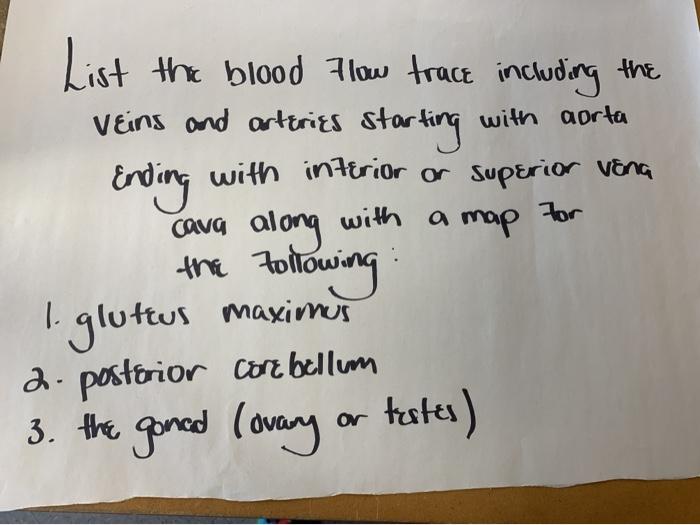 List the blood flow trace including the
veins and arteries starting with aorta
Ending with inferior or superior vena
cava along with a map for
the following:
1. gluteus maximus
2. posterior cerebellum
3. the gonad (ovary or testes)